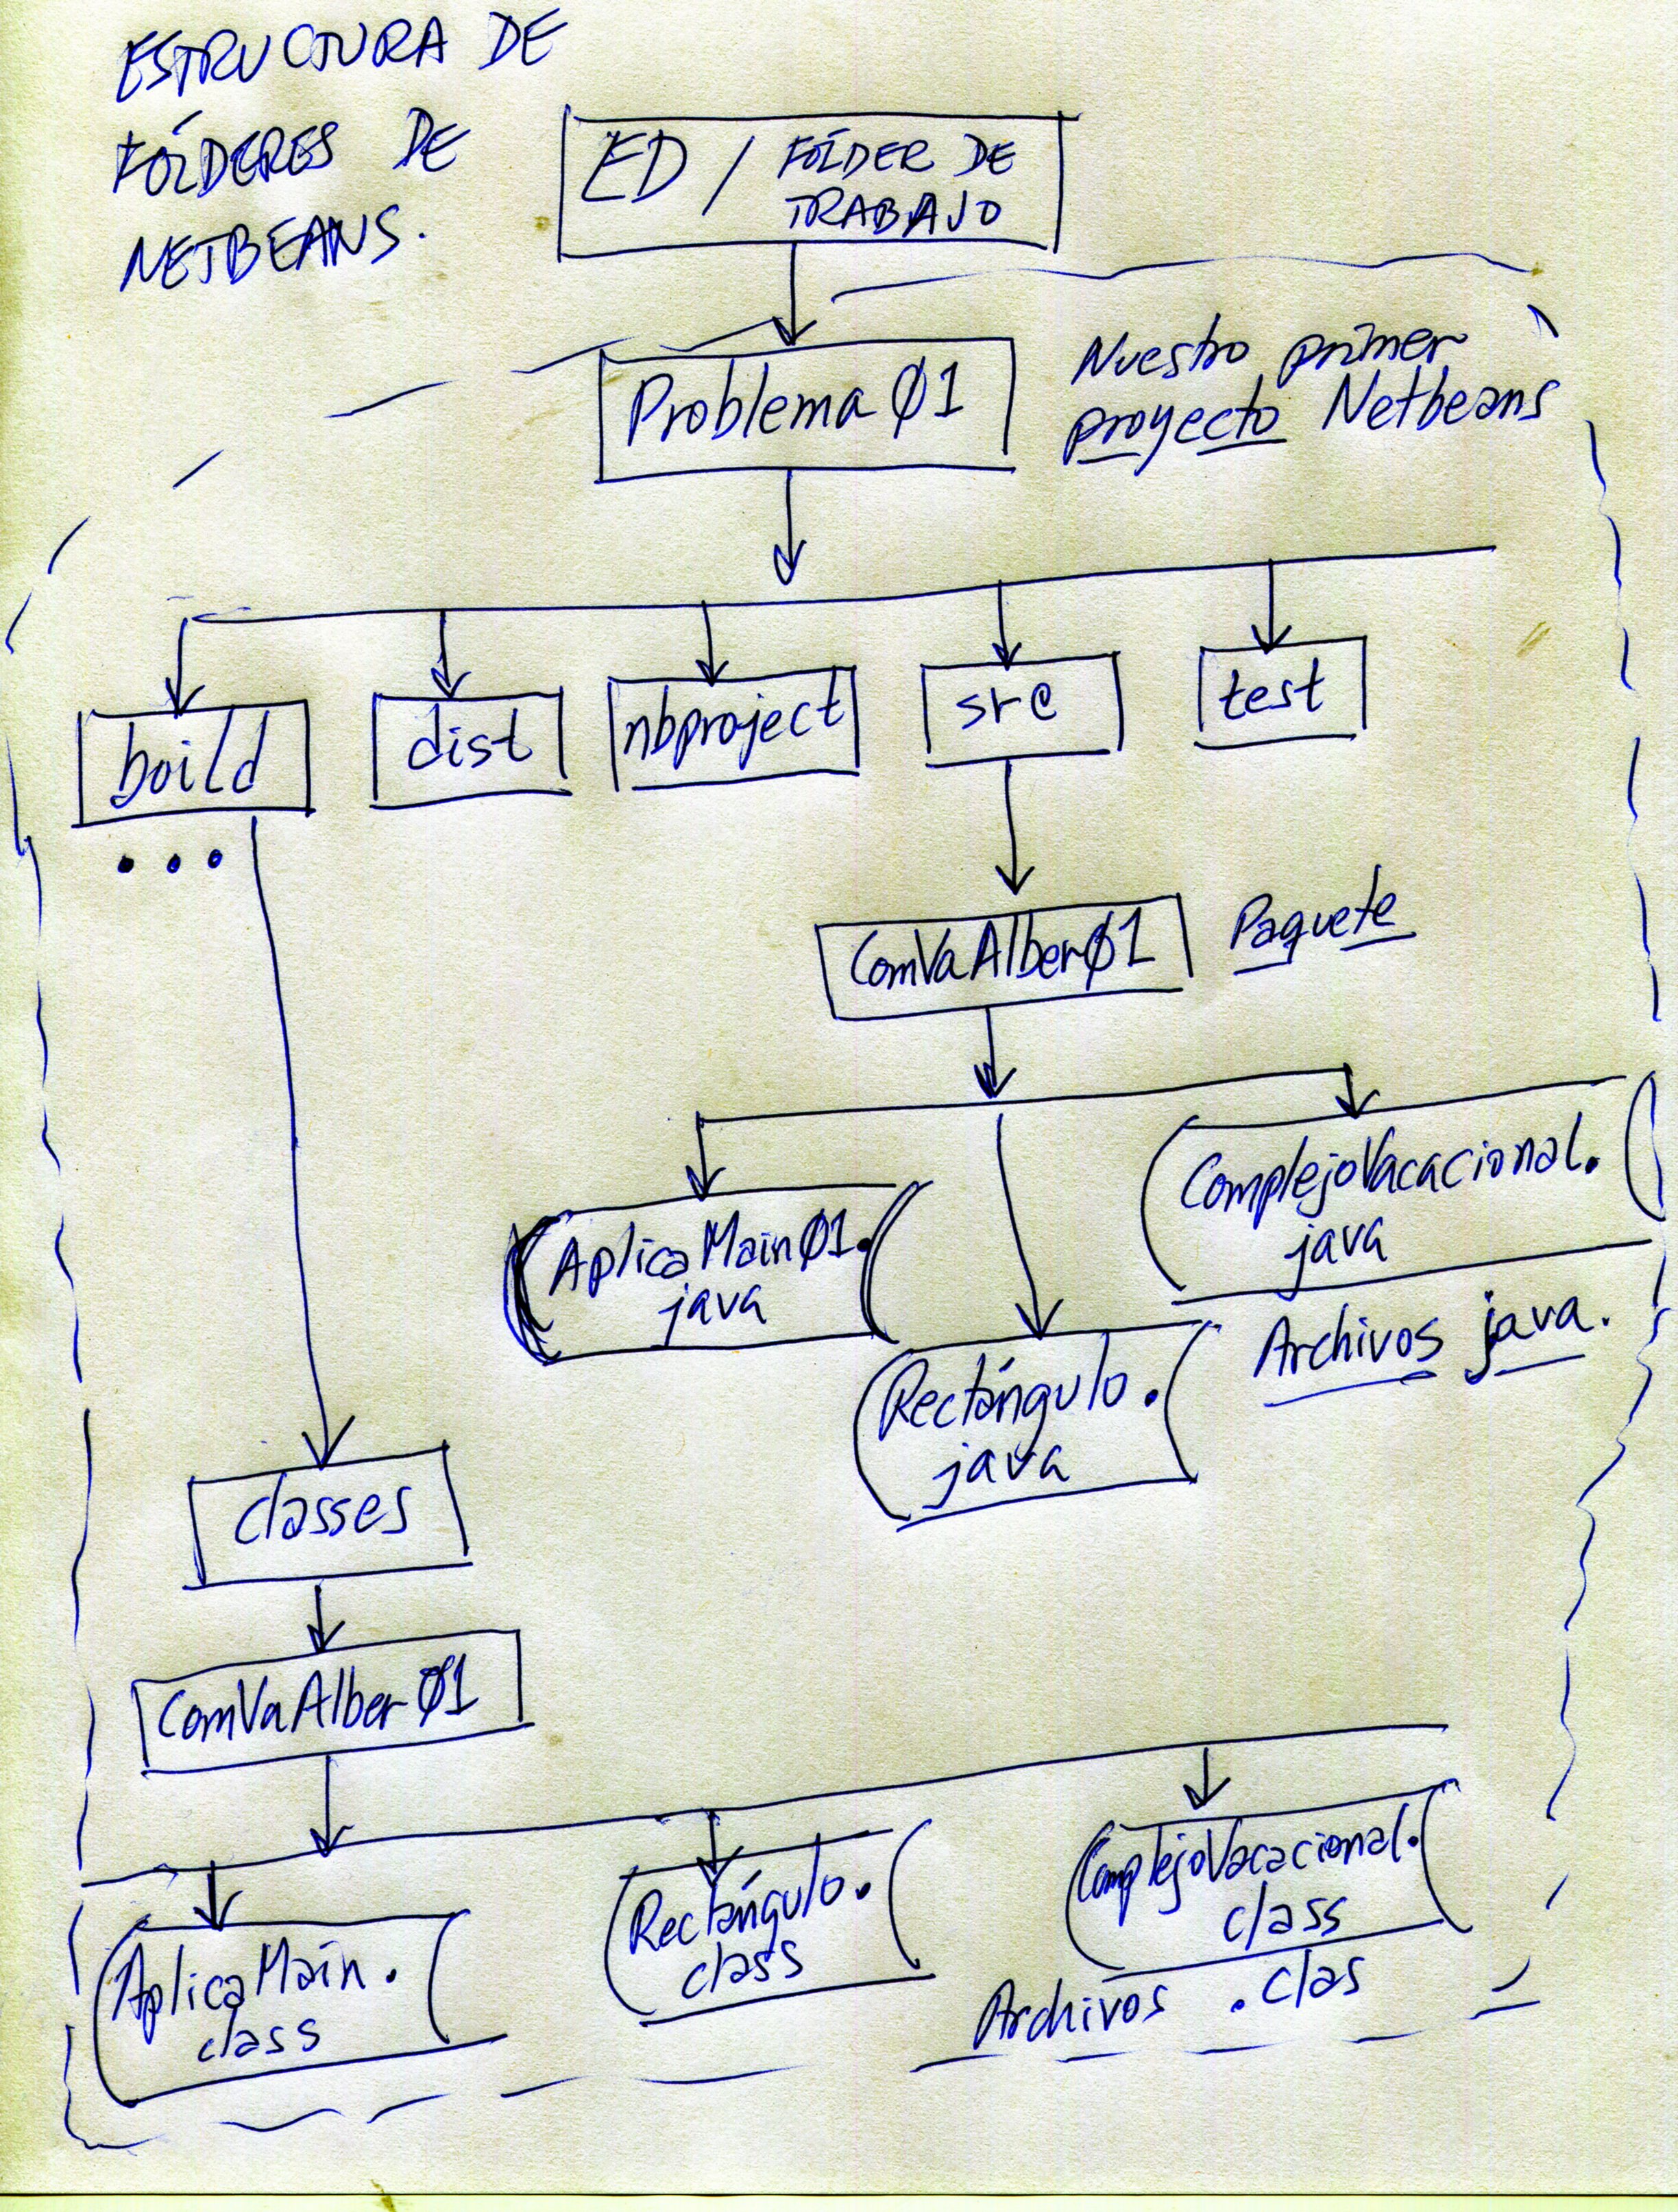 ESTRUCTURA DE
FÓLDERES DE
NETBEANS.
ED / FÓLDER DE
TRABAJO
Problema 01
Nuestro primer
proyecto Netbeans
boild
dist
nbproject
src
test
...
ComVaAlber01
Paquete
AplicaMain01.
java
Rectángulo.
java
ComplejoVacacional.
java
Archivos java.
classes
ComVaAlber01
AplicaMain.
class
Rectángulo.
class
ComplejoVacacional.
class
Archivos .clas